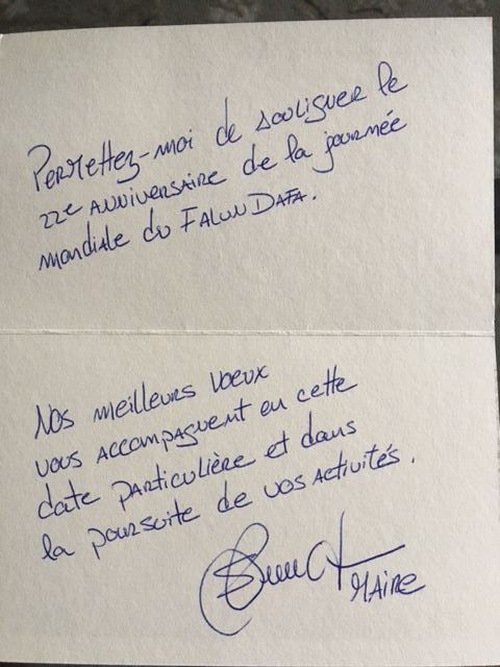 Permettez-moi de souligner le
22e anniversaire de la journée
mondiale du FALUN DAFA.
Nos meilleurs voeux
vous accompagnent en cette
date particulière et dans
la poursuite de vos activités.
MAIRE